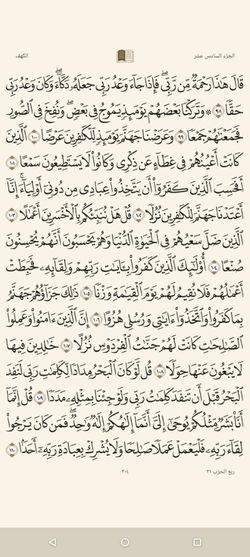 الجزء السادس عشر
الكهف
قَالَ هَٰذَا رَحْمَةٌ مِّن رَّبِّي ۖ فَإِذَا جَاءَ وَعْدُ رَبِّي جَعَلَهُ دَكَّاءَ ۖ وَكَانَ وَعْدُ رَبِّي
حَقًّا ٩٨ ۞ وَتَرَكْنَا بَعْضَهُمْ يَوْمَئِذٍ يَمُوجُ فِي بَعْضٍ ۖ وَنُفِخَ فِي الصُّورِ
فَجَمَعْنَاهُمْ جَمْعًا ٩٩ وَعَرَضْنَا جَهَنَّمَ يَوْمَئِذٍ لِّلْكَافِرِينَ عَرْضًا ١٠٠ الَّذِينَ
كَانَتْ أَعْيُنُهُمْ فِي غِطَاءٍ عَن ذِكْرِي وَكَانُوا لَا يَسْتَطِيعُونَ سَمْعًا ١٠١
أَفَحَسِبَ الَّذِينَ كَفَرُوا أَن يَتَّخِذُوا عِبَادِي مِن دُونِي أَوْلِيَاءَ ۚ إِنَّا
أَعْتَدْنَا جَهَنَّمَ لِلْكَافِرِينَ نُزُلًا ١٠٢ قُلْ هَلْ نُنَبِّئُكُم بِالْأَخْسَرِينَ أَعْمَالًا ١٠٣
الَّذِينَ ضَلَّ سَعْيُهُمْ فِي الْحَيَاةِ الدُّنْيَا وَهُمْ يَحْسَبُونَ أَنَّهُمْ يُحْسِنُونَ
صُنْعًا ١٠٤ أُولَٰئِكَ الَّذِينَ كَفَرُوا بِآيَاتِ رَبِّهِمْ وَلِقَائِهِ فَحَبِطَتْ
أَعْمَالُهُمْ فَلَا نُقِيمُ لَهُمْ يَوْمَ الْقِيَامَةِ وَزْنًا ١٠٥ ذَٰلِكَ جَزَاؤُهُمْ جَهَنَّمُ
بِمَا كَفَرُوا وَاتَّخَذُوا آيَاتِي وَرُسُلِي هُزُوًا ١٠٦ إِنَّ الَّذِينَ آمَنُوا وَعَمِلُوا
الصَّالِحَاتِ كَانَتْ لَهُمْ جَنَّاتُ الْفِرْدَوْسِ نُزُلًا ١٠٧ خَالِدِينَ فِيهَا
لَا يَبْغُونَ عَنْهَا حِوَلًا ١٠٨ قُل لَّوْ كَانَ الْبَحْرُ مِدَادًا لِّكَلِمَاتِ رَبِّي لَنَفِدَ
الْبَحْرُ قَبْلَ أَن تَنفَدَ كَلِمَاتُ رَبِّي وَلَوْ جِئْنَا بِمِثْلِهِ مَدَدًا ١٠٩ قُلْ إِنَّمَا
أَنَا بَشَرٌ مِّثْلُكُمْ يُوحَىٰ إِلَيَّ أَنَّمَا إِلَٰهُكُمْ إِلَٰهٌ وَاحِدٌ ۖ فَمَن كَانَ يَرْجُوا
لِقَاءَ رَبِّهِ فَلْيَعْمَلْ عَمَلًا صَالِحًا وَلَا يُشْرِكْ بِعِبَادَةِ رَبِّهِ أَحَدًا ١١٠
ربع الحزب ٣١
٣٠٤